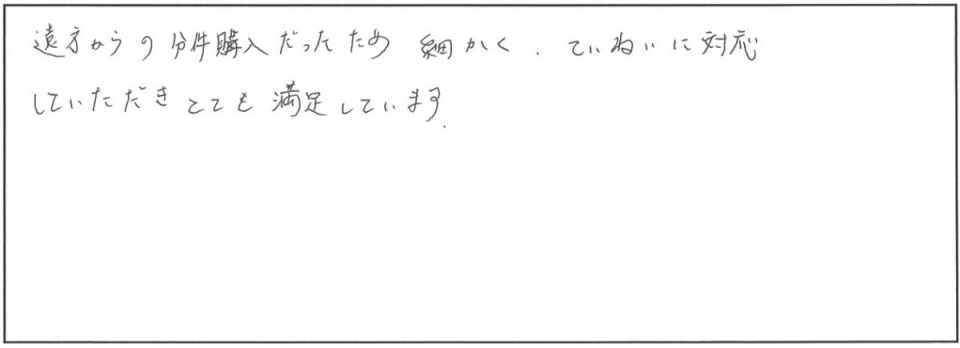 遠方からの分件購入だったため 細かく、ていねいに対応
していただきとても満足しています。